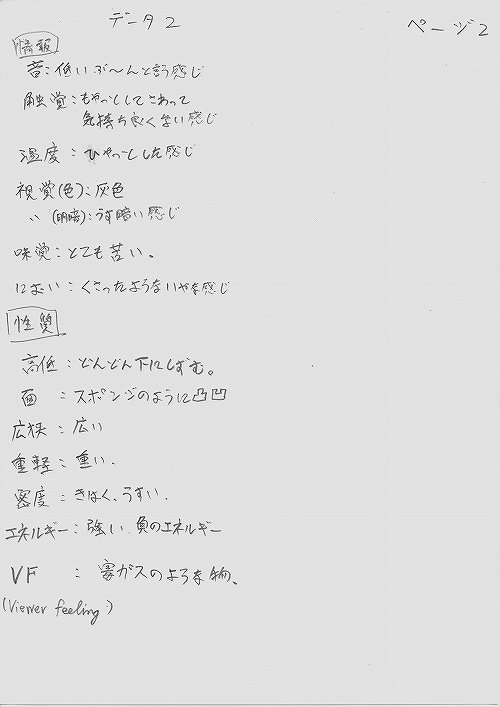 データ2
ページ2
情報
音：低いぶ〜んと言う感じ
触覚：もやっとしてさわって
気持ち良くない感じ
温度：ひやっとした感じ
視覚(色)：灰色
〃 (明暗)：うす暗い感じ
味覚：とても苦い。
におい：くさったようないやな感じ
性質
高低：どんどん下にしずむ。
面：スポンジのように凸凹
広狭：広い
重軽：重い.
密度：きはく、うすい.
エネルギー：強い 負のエネルギー
VF：毒ガスのような物、
(Viewer feeling)